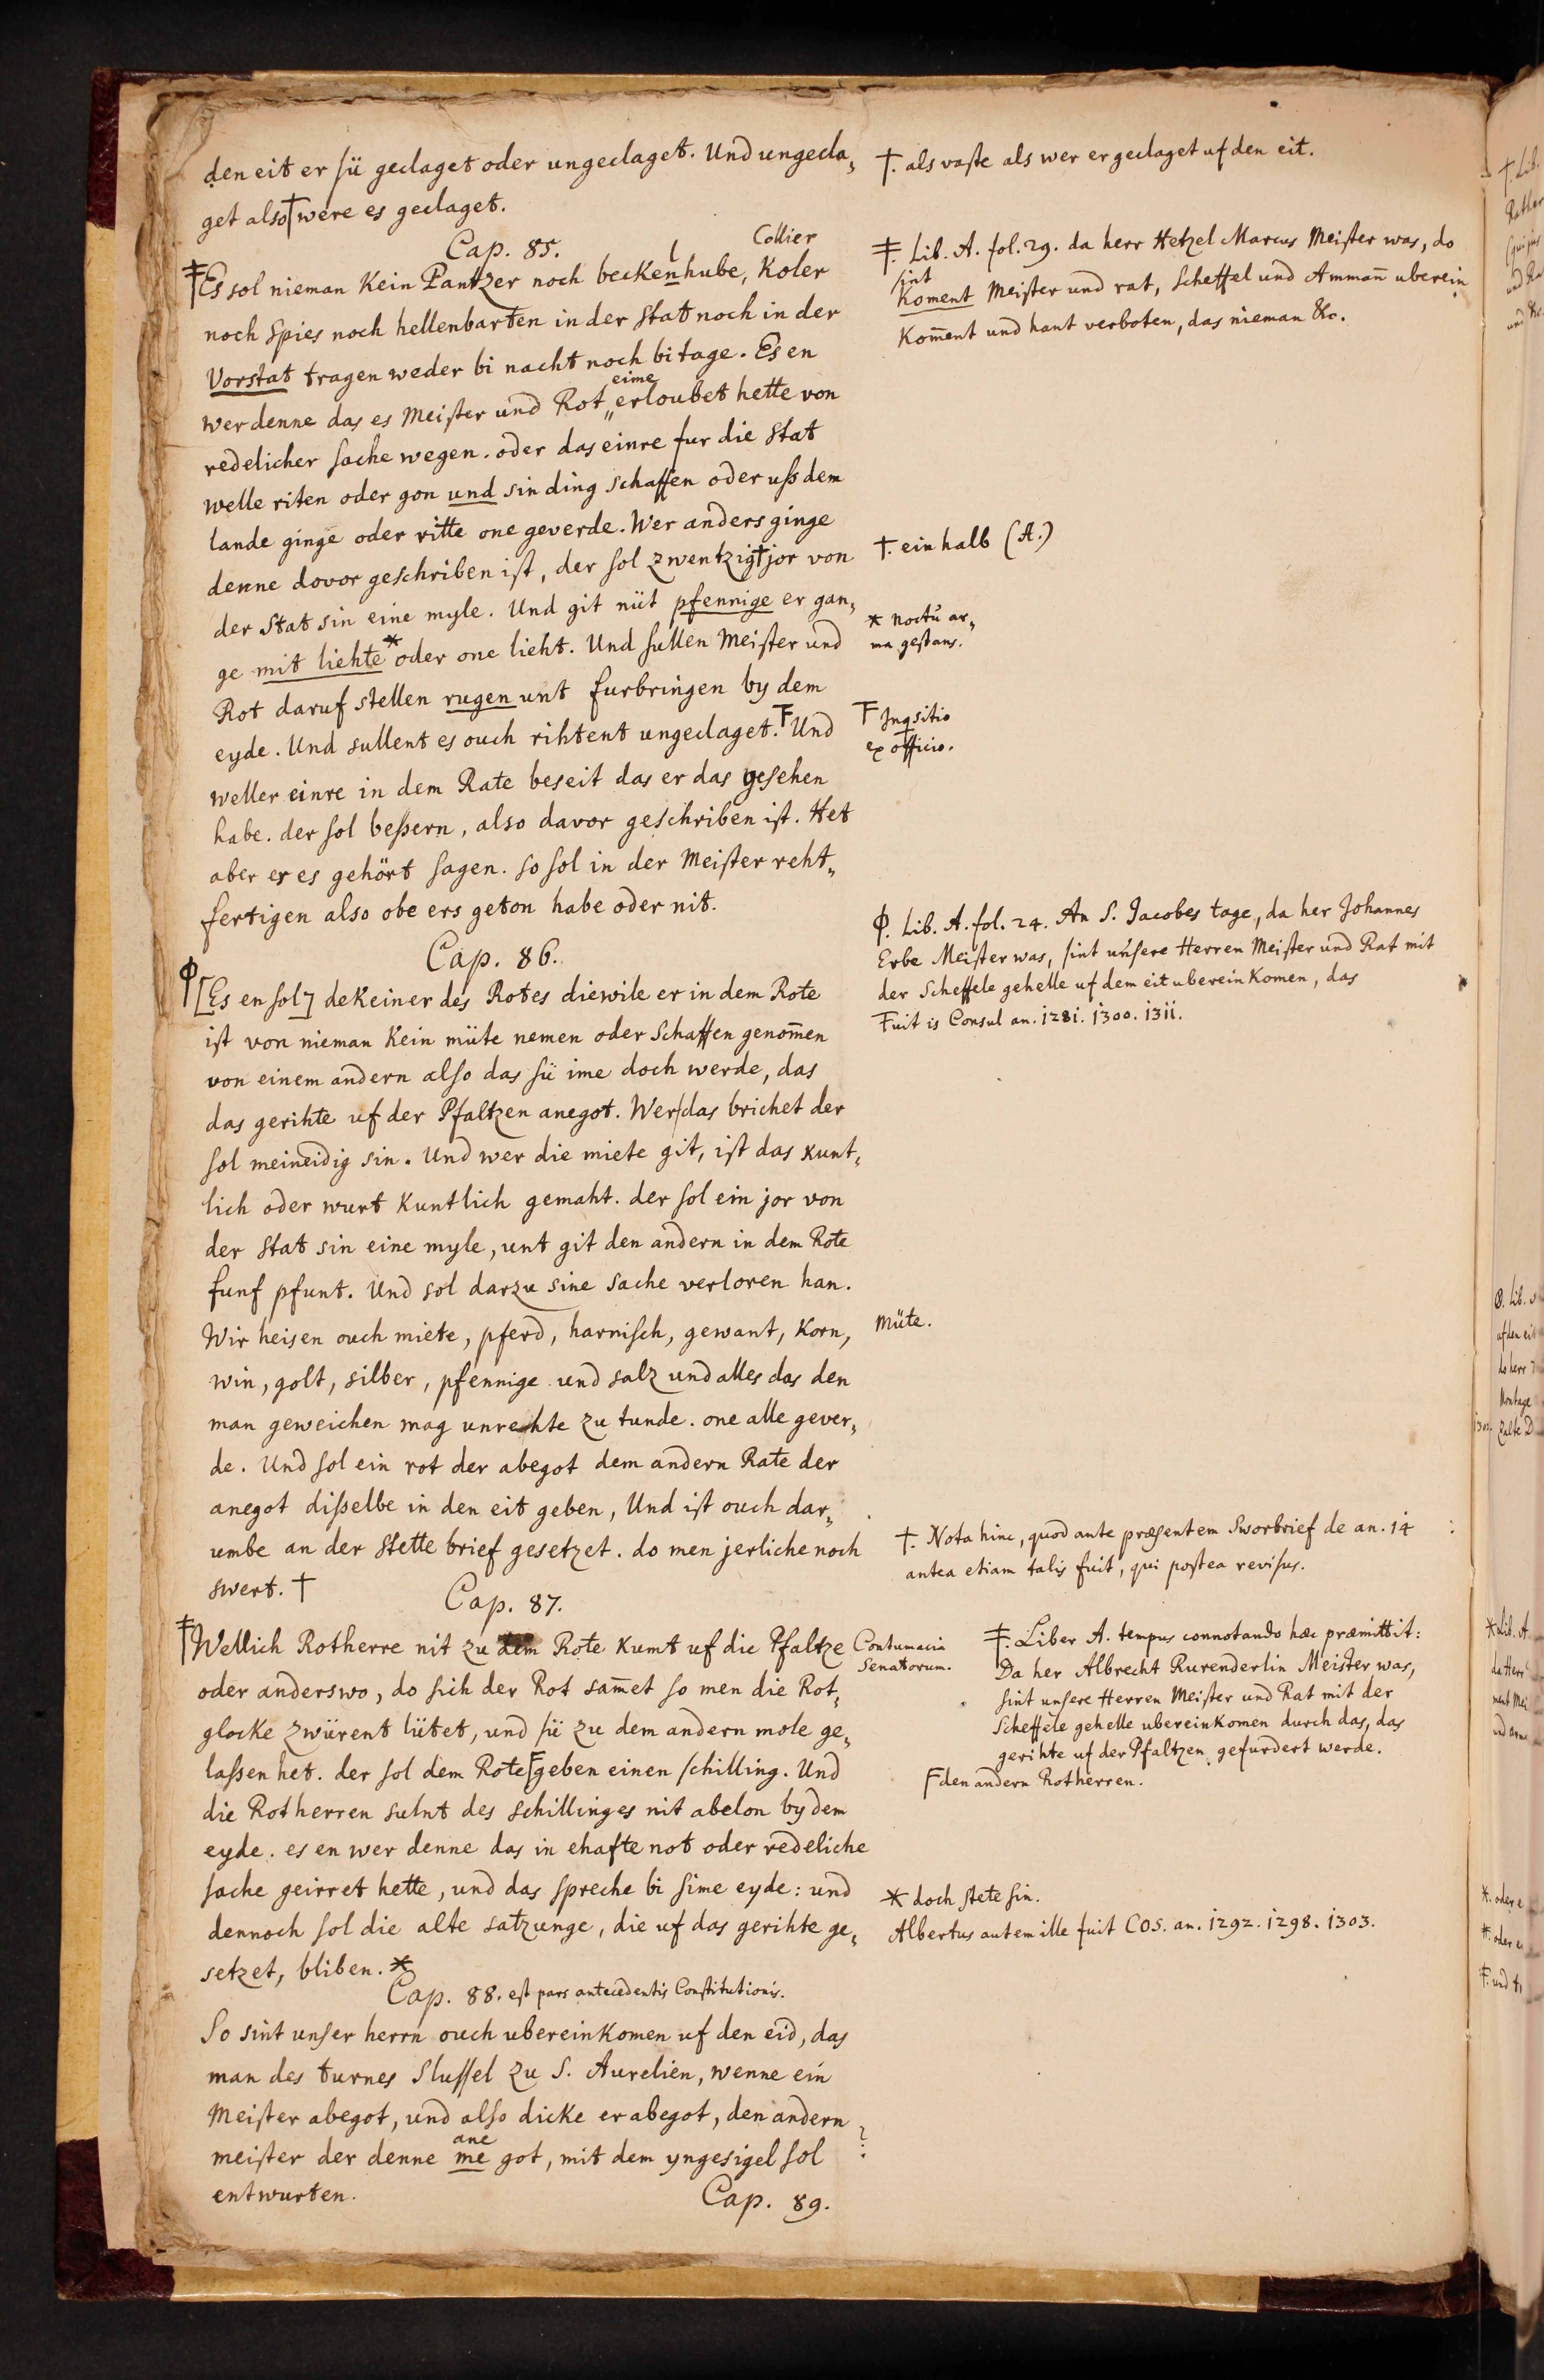 den eit er sü geclaget oder ungeclaget. Und ungecla„
get also† were es geclaget.
†. als vaste als wer er geclaget uf den eit.
Cap. 85.
l Collier
‡Es sol nieman Kein Pantzer noch beckenhube, Koler
noch Spies noch hellenbarten in der Stat noch in der
Vorstat tragen weder bi nacht noch bi tage. Es en
eime
wer denne das es Meister und Rot „erloubet hette von
redelicher sache wegen. oder das einre fur die Stat
welle riten oder gon und sin ding schaffen oder uß dem
lande ginge oder ritte one geverde. Wer anders ginge
denne dovor geschriben ist, der sol zwentzig† jor von
der Stat sin eine myle. Und git nüt pfennige er gan„
ge mit liehte* oder one lieht. Und sullen Meister und
Rot daruf stellen rugen unt furbringen by dem
eyde. Und sullent es ouch rihtent ungeclaget.Ŧ Und
weller einre in dem Rate beseit das er das gesehen
habe. der sol beßern, also davor geschriben ist. Het
aber er es gehört sagen. so sol in der Meister reht„
fertigen also obe ers geton habe oder nit.
‡. Lib. A. fol. 29. da herr Hetzel Marcus Meister was, do
sint
Koment Meister und rat, Scheffel und Amman̄ uberein
Kom̄ent und hant verboten, das nieman &c.
†. ein halb (A.)
* noctu ar„
ma gestans.
Ŧ Inqsitio
ex officio.
Cap. 86.
ϕ[Es en sol] deKeiner des Rotes diewile er in dem Rote
ist von nieman Kein müte nemen oder Schaffen genom̄en
von einem andern also das sü ime doch werde, das
das gerihte uf der Pfaltzen anegot. Wer das brichet der
sol meineidig sin. Und wer die miete git, ist das kunt„
lich oder wurt Kuntlich gemaht. der sol ein jor von
der Stat sin eine myle, unt git den andern in dem Rote
funf pfunt. Und sol darzu sine Sache verloren han.
Wir heisen ouch miete, pferd, harnisch, gewant, Korn,
win, golt, silber, pfennige und salz und alles das den
man geweichen mag unrehte zu tunde. one alle gever„
de. Und sol ein rot der abegot dem andern Rate der
anegot dißelbe in den eit geben, Und ist ouch dar„
umbe an der Stette brief gesetzet. do men jerliche noch
swert. †
ϕ. Lib. A. fol. 24. An S. Jacobes tage, da her Johannes
Erbe Meister was, sint unsere Herren Meister und Rat mit
der Scheffele gehelle uf dem eit uberein Komen, das
Fuit is Consul an. 1281. 1300. 1311.
Müte.
†. Nota hinc, quod ante præsentem Sworbrief de an. 14 :
antea etiam talis fuit, qui postea revisus.
Cap. 87.
‡Wellich Rotherre nit zu dem Rote kumt uf die Pfaltze
oder anderswo, do sich der Rot sam̄et so men die Rot„
glocke zwürent lütet, und sü zu dem andern mole ge„
laßen het. der sol dem RoteF geben einen schilling. Und
die Rotherren sulnt des Schillinges nit abelon by dem
eyde. es en wer denne das in ehafte not oder redeliche
sache geirret hette, und das spreche bi sime eyde: und
dennoch sol die alte satzunge, die uf das gerihte ge„
setzet, bliben. *
Contumacia
Senatorum.
‡. Liber A. tempus connotando hæc præmittit:
Da her Albrecht Rurenderlin Meister was,
sint unsere Herren Meister und Rat mit der
Scheffele gehelle ubereinkomen durch das, das
gerihte uf der Pfaltzen gefurdert werde.
F den andern Rotherren.
* doch stete sin.
Albertus autem ille fuit COS. an. 1292. 1298. 1303.
Cap. 88. est pars antecedentis Constitutionis.
So sint unser herrn ouch ubereinKomen uf den eid, das
man des turnes Slussel zu S. Aurelien, wenne ein
Meister abegot, und also dicke er abegot, den andern
ane
meister der denne me got, mit dem yngesigel sol
entwurten.
Cap. 89.